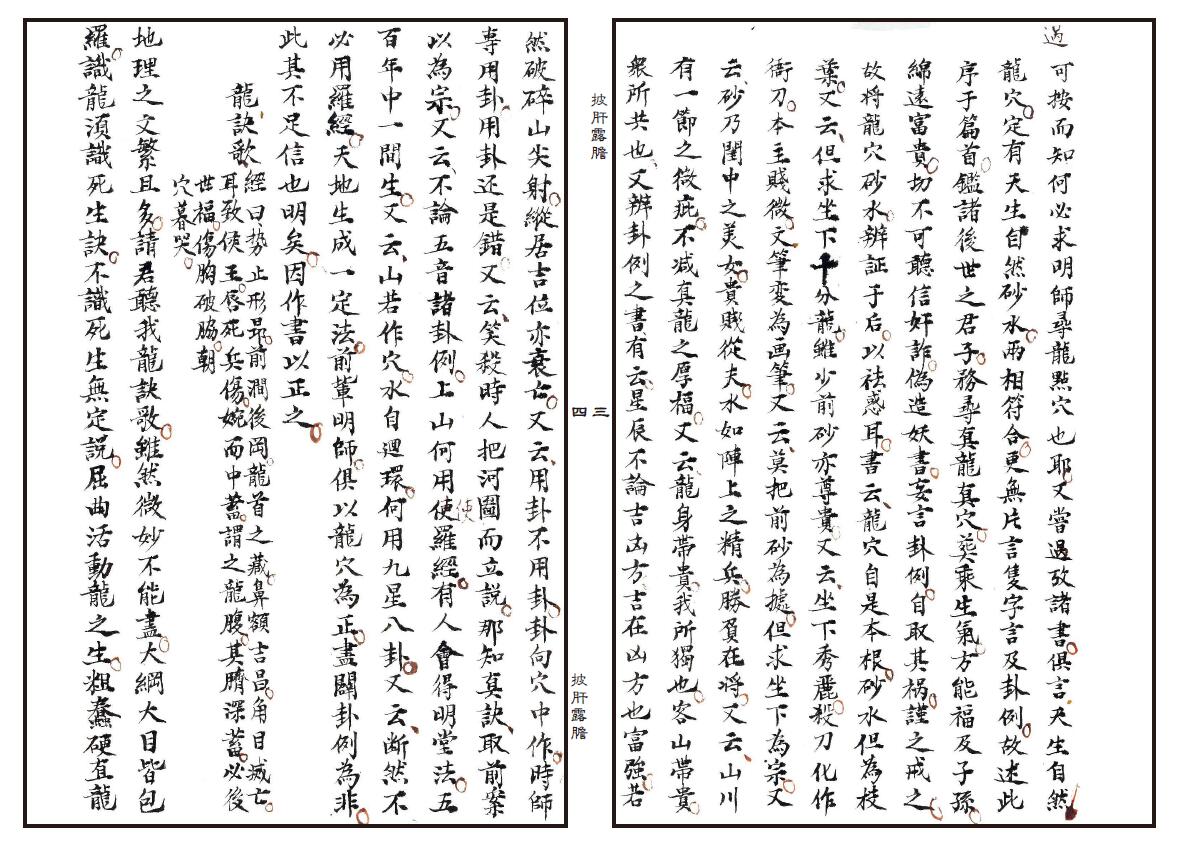 過
可按而知何必求明師尋龍點穴也耶又嘗過攷諸書俱言天生自然
龍穴定有天生自然砂水兩相符合更無片言隻字言及卦例故述此
序于篇首鑑諸後世之君子務尋真龍真穴葬乘生氣方能福及子孫
綿遠富貴切不可聽信奸詐偽造妖書妄言卦例自取其禍謹之戒之
故将龍穴砂水辨証于后以祛惑耳書云龍穴自是本根砂水但為枝
葉又云但求坐下十分龍雖少前砂亦尊貴又云坐下秀麗殺刀化作
衙刀本主賤微文筆変為画筆又云莫把前砂為據但求坐下為宗又
云砂乃閨中之美女貴賎從夫水如陣上之精兵勝負在将又云山川
有一節之微疵不减真龍之厚福又云龍身帯貴我所獨也客山帯貴
衆所共也又辨卦例之書有云星辰不論吉凶方吉在凶方也富強若
披肝露膽
三
四
披肝露膽
然破碎山尖射縱居吉位亦衰亡又云用卦不用卦卦向穴中作時師
專用卦用卦还是錯又云笑殺時人把河圖而立説那知真訣取前案
以為宗又云不論五音諸卦例上山何用使羅經有人會得明堂法五
使
百年中一間生又云山若作穴水自迴環何用九星八卦又云断然不
必用羅經天地生成一定法前輩明師俱以龍穴為正盡闢卦例為非
此其不足信也明矣因作書以正之
龍訣歌
經曰勢止形昂前澗後岡龍首之藏鼻額吉昌角目滅亡
耳致侯王唇死兵傷婉而中蓄謂之龍腹其臍深蓄必後
世福傷胸破脇朝
穴暮哭
地理之文繁且多請君聽我龍訣歌雖然微妙不能盡大綱大目皆包
羅識龍湏識死生訣不識死生無定説屈曲活動龍之生粗蠢硬直龍